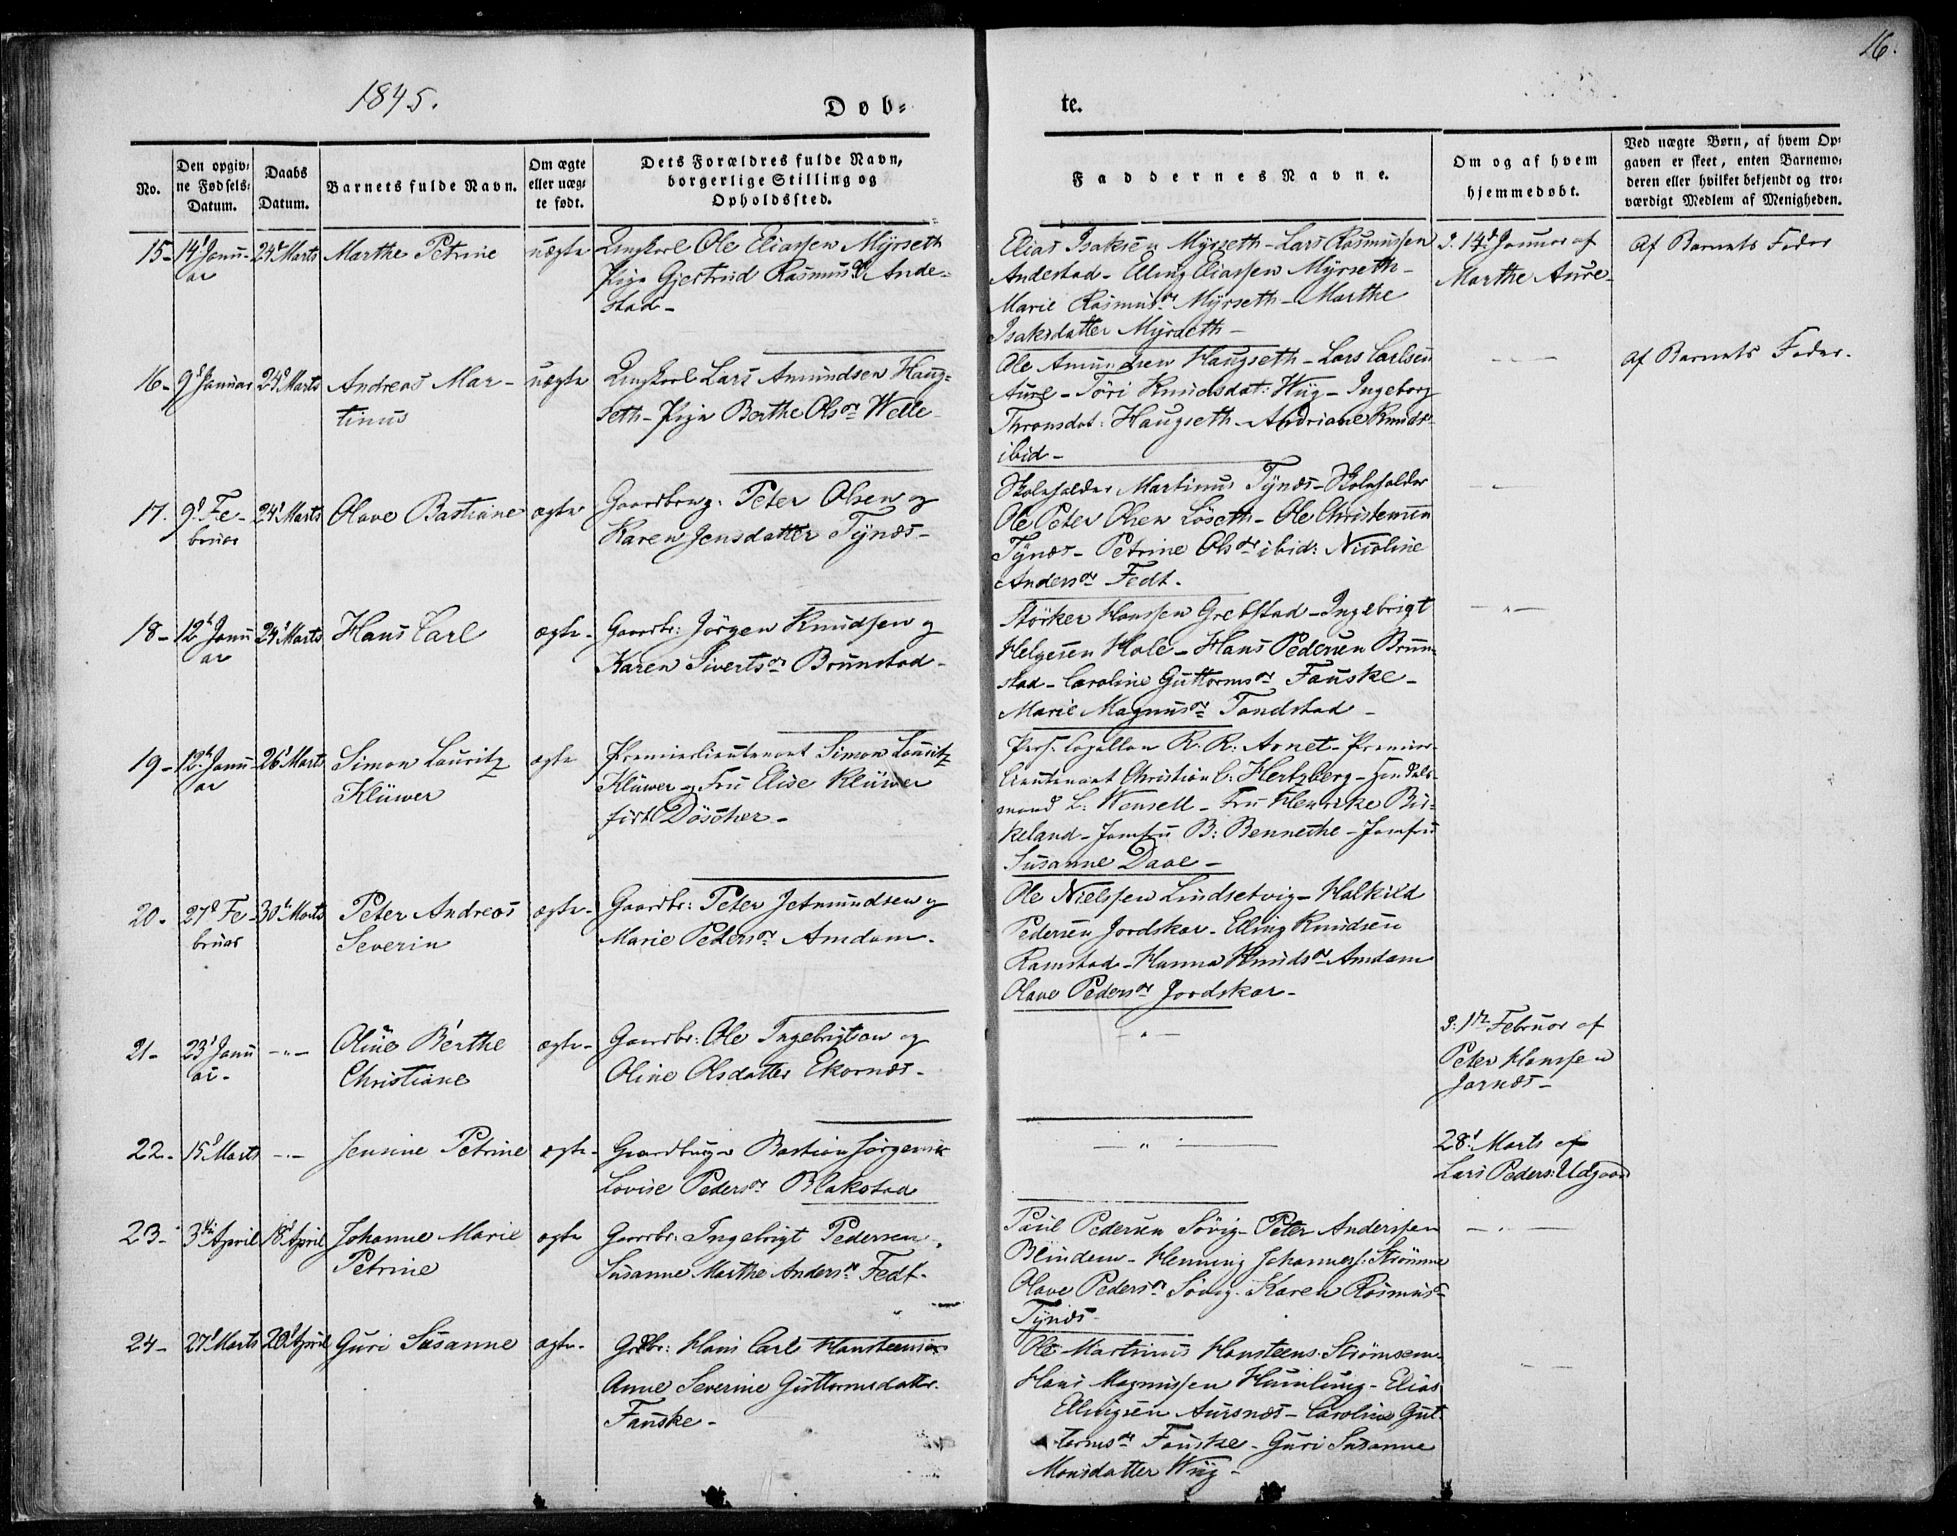 16.
1845.
Døb-
te.
No.
Den opgiv-
ne Fødsels-
Datum.
Daabs
Datum.
Barnets fulde Navn.
Om ægte
eller uæg-
te født.
Dets Forældres fulde Navn,
borgerlige Stilling og
Opholdssted.
Faddernes Navne.
Om og af hvem
hjemmedøbt.
Ved uægte Børn, af hvem Op-
gaven er skeet, enten Barnemo-
deren eller hvilket bekjendt og tro-
værdigt Medlem af Menigheden.
15- 14d Janu-
ar
24d Marts
Marthe Petrine
uægte
Ungkarl Ole Eliassen Myrseth
Pige Gjertrud Rasmusdr Ande-
stad-
Elias Isaksen Myrseth- Lars Rasmussen
Andestad- Elling Eliassen Myrseth-
Marie Rasmusdr Myrseth- Marthe
Isaksdatter Myrseth-
d. 14d Januar af
Marthe Aure-
Af Barnets Fader
16- 9d Januar
24d Marts
Andreas Mar-
tinus
uægte
Ungkarl Lars Amundsen Haug-
seth- Pige Berthe Olsdr Welle-
Ole Amundsen Haugseth- Lars Carlsen
Aure- Tøri Knudsdat: Wiig- Ingeborg
Thronsdat: Haugseth- Andriane Knudsdr
ibid-
Af Barnets Fader.
17. 9d Fe-
bruar
24d Marts
Olave Bastiane
ægte
Gaardbrug: Peter Olsen og
Karen Jensdatter Tynæs-
Skoleholder Martinus Tynæs- Skoleholder
Ole Peter Olsen Løseth- Ole Christensen
Tynæs- Petrine Olsdr ibid: Nicoline
Andersdr Fedt.
18- 12d Janu
ar
24d Marts
Hans Carl
ægte-
Gaardbr: Jørgen Knudsen og
Karen Sivertsdr Brunstad-
Størker Hanssen Grebstad- Ingebrigt
Helgesen Hole- Hans Pedersen Brun-
stad- Caroline Guttormsdr Fauske-
Marie Magnusdr Tandstad-
19- 12d Janu-
ar
26d Marts
Simon Lauritz
Klüwer
ægte
Premierlieutenant Simon Lauritz
Klüwer og Fru Elise Klüwer
født Døscher-
Pers: Capellan R. R: Arnet- Premier-
lieutenant Christian C: Hertzberg-
L: Wensell- Fru Henrike Bir-
keland- Jomfru B: Bennethe- Jomfru
Susanne Daae-
20- 27d Fe-
bruar
30d Marts
Peter Andreas
Severin
ægte-
Gaardbr: Peter Jetmundsen og
Marie Pedersdr Amdam.
Ole Nielssen Lindsetvig- Halkild
Pedersen Jordskar- Elling Knudsen
Ramstad- Hanna Knudsdr Amdam
Olave Pedersdr Jordskar-
21- 23d Janu
ar.
-"-
Oline Berthe
Christiane
ægte-
Gaardbr: Ole Ingebrigtsen og
Oline Olsdatter Ekornæs-
-"-
d: 1ste Februar af
Peter Hanssen
Jarnæs-
22- 15d Marts
-"-
Jensine Petrine
ægte-
Gaardbruger Bastian Jørgensen
Lovise Pedersdr Blakstad
-"-
28d Marts af
Lars Peders: Udgaard
23- 3die April
18d April
Johanne Marie
Petrine
ægte
Gaardbr: Ingebrigt Pedersen
Susanne Marthe Andersdr Fedt-
Paul Pedersen Søvig- Peter Anderssen
Blindem- Henning Johanness: Strømme
Olave Pedersdr Søvig- Karen Rasmus-
Tynæs-
24- 27d Marts
20d April
Guri Susanne
ægte-
Grdbr: Hans Carl Hansteensen
Anne Severine Guttormsdatter
Fauske-
Ole Martinus Hansteens: Strømsem-
Hans Magnussen Humlung- Elias
Ellingsen Aursnæs- Caroline Gut-
tormsdr Fauske- Guri Susanne
Monsdatter Wiig-